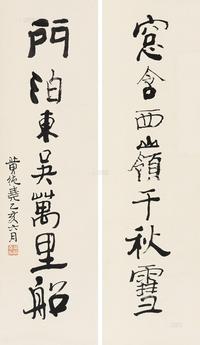 窓含西嶺千秋雪
門泊東吳萬里船
乙亥六月